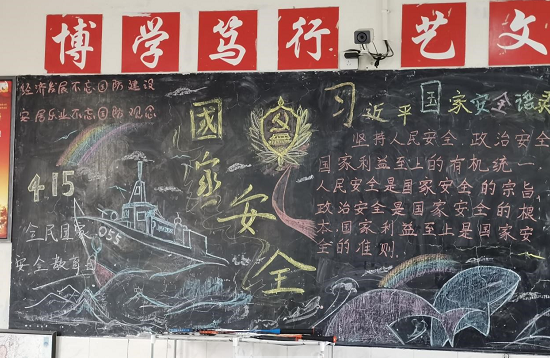 博学笃行 艺文
经济发展不忘国防建设
安居乐业不忘国防观念
4.15
全民国家
安全教育日
055
國家安全
习近平国家安全语录
坚持人民安全、政治安全、
国家利益至上的有机统一
人民安全是国家安全的宗旨,
政治安全是国家安全的根
本,国家利益至上是国家安
全的准则.